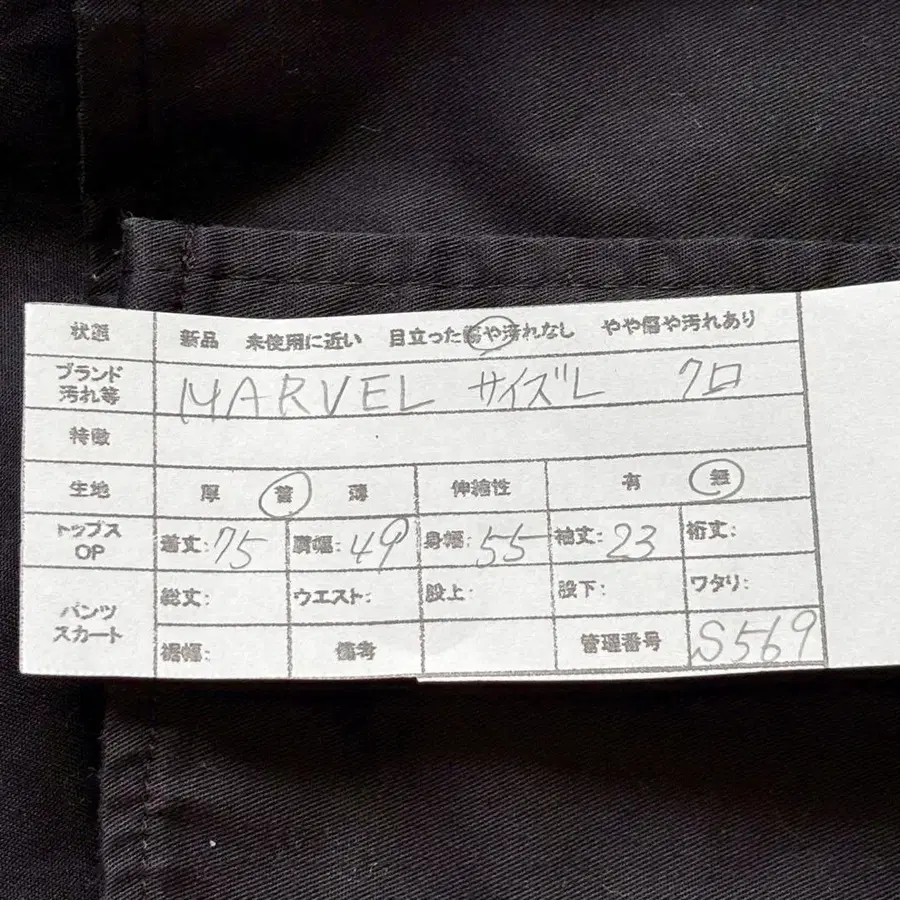 状態 新品 未使用に近い 目立った傷や汚れなし やや傷や汚れあり
ブランド
汚れ等 MARVEL サイズL クロ
特徴
生地 厚 普 薄 伸縮性 有 無
トップス
OP 着丈:75 肩幅:49 身幅:55 袖丈:23 裄丈:
パンツ
スカート 総丈: ウエスト: 股上: 股下: ワタリ:
裾幅: 備考 管理番号 S569